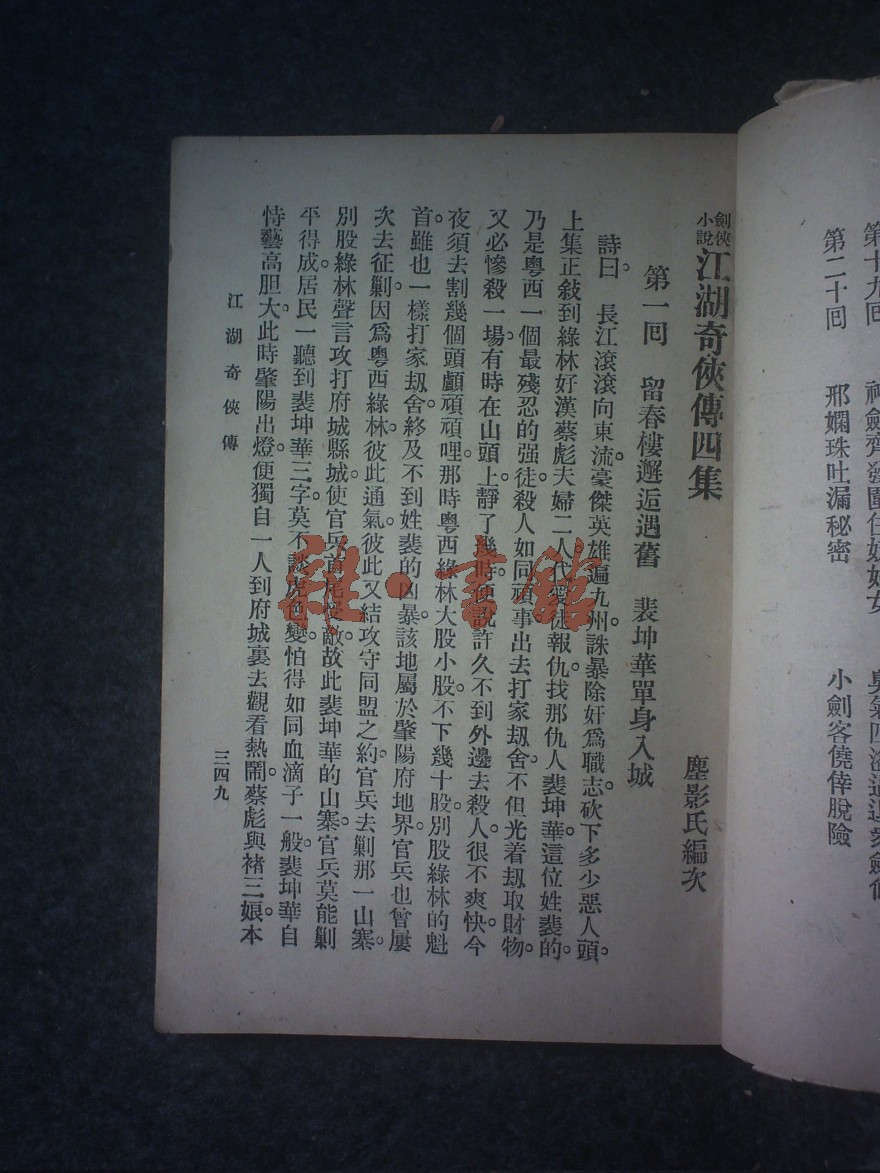 第二十回　邢嫻珠吐漏秘密　小劍客僥倖脫險
劍俠小說 江湖奇俠傳四集
塵影氏編次
第一回　留春樓邂逅遇舊　裴坤華單身入城
詩曰。長江滾滾向東流。豪傑英雄遍九州。誅暴除奸爲職志。砍下多少惡人頭。
上集正敍到綠林好漢蔡彪夫婦二人代愛徒報仇。找那仇人裴坤華。這位姓裴的。
乃是粵西一個最殘忍的强徒。殺人如同頑事。出去打家刼舍。不但光着刼取財物。
又必慘殺一場。有時在山頭上。靜了幾時。便說許久不到外邊去殺人。很不爽快。今
夜須去割幾個頭顱頑頑哩。那時粵西綠林大股小股。不下幾十股。別股綠林的魁
首。雖也一樣打家刼舍。終及不到姓裴的凶暴。該地屬於肇陽府地界。官兵也曾屢
次去征剿。因爲粵西綠林。彼此通氣。彼此又結攻守同盟之約。官兵去剿那一山寨。
別股綠林聲言攻打府城縣城。使官兵首尾受敵。故此裴坤華的山寨。官兵莫能剿
平得成。居民一聽到裴坤華三字。莫不談虎色變。怕得如同血滴子一般。裴坤華自
恃藝高胆大。此時肇陽出燈。便獨自一人到府城裏去觀看熱鬧。蔡彪與褚三娘。本
江湖奇俠傳
三四九
雜·書館